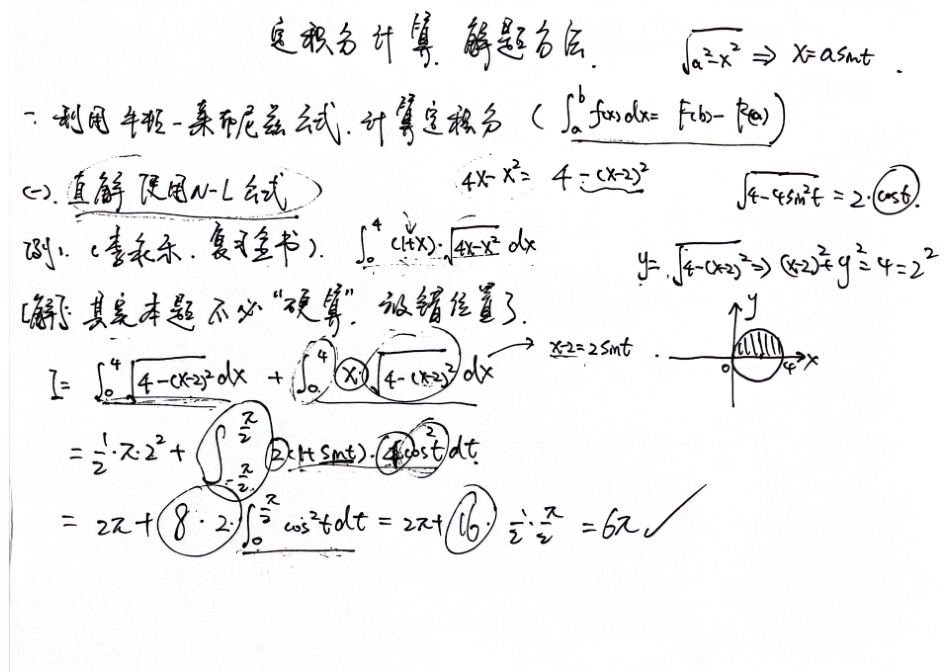 定积分计算 解题方法. √(a²-x²) ⇒ x=asint.
一. 利用牛顿-莱布尼兹公式. 计算定积分 (∫_a^b f(x)dx = F(b)-F(a))
(一). 直解使用N-L公式 4x-x² = 4-(x-2)² √(4-4sin²t) = 2·cost.
例1. (李永乐. 复习全书). ∫_0^4 (1+x)·√(4x-x²) dx y=√(4-(x-2)²) ⇒ (x-2)²+y²=4=2²
[解]: 其实本题不必“硬算”. 放错位置了.
I= ∫_0^4 √(4-(x-2)²) dx + ∫_0^4 x·√(4-(x-2)²) dx → x-2=2sint.
y
0 4 x
= 1/2·π·2² + ∫_{-π/2}^{π/2} 2(1+sint)·4cos²t dt.
= 2π+8·2·∫_0^{π/2} cos²t dt = 2π+16·1/2·π/2 = 6π ✓